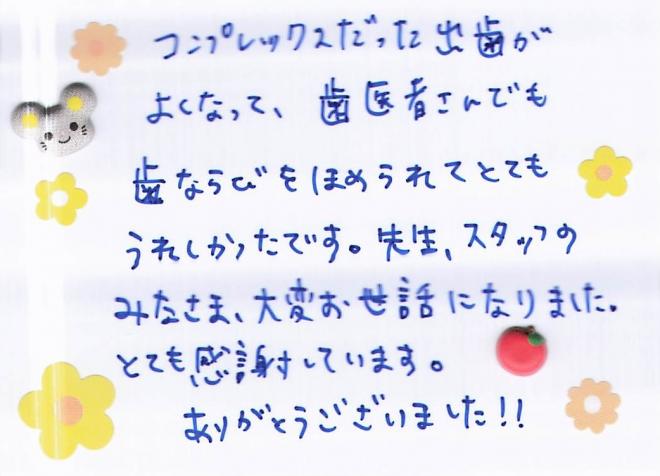 コンプレックスだった出歯が
よくなって、歯医者さんでも
歯ならびをほめられてとても
うれしかったです。先生、スタッフの
みなさま、大変お世話になりました。
とても感謝しています。
ありがとうございました!!